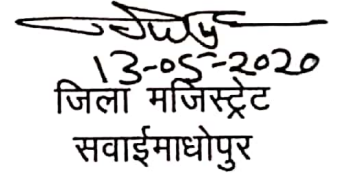 13-05-2020
जिला मजिस्ट्रेट
सवाईमाधोपुर